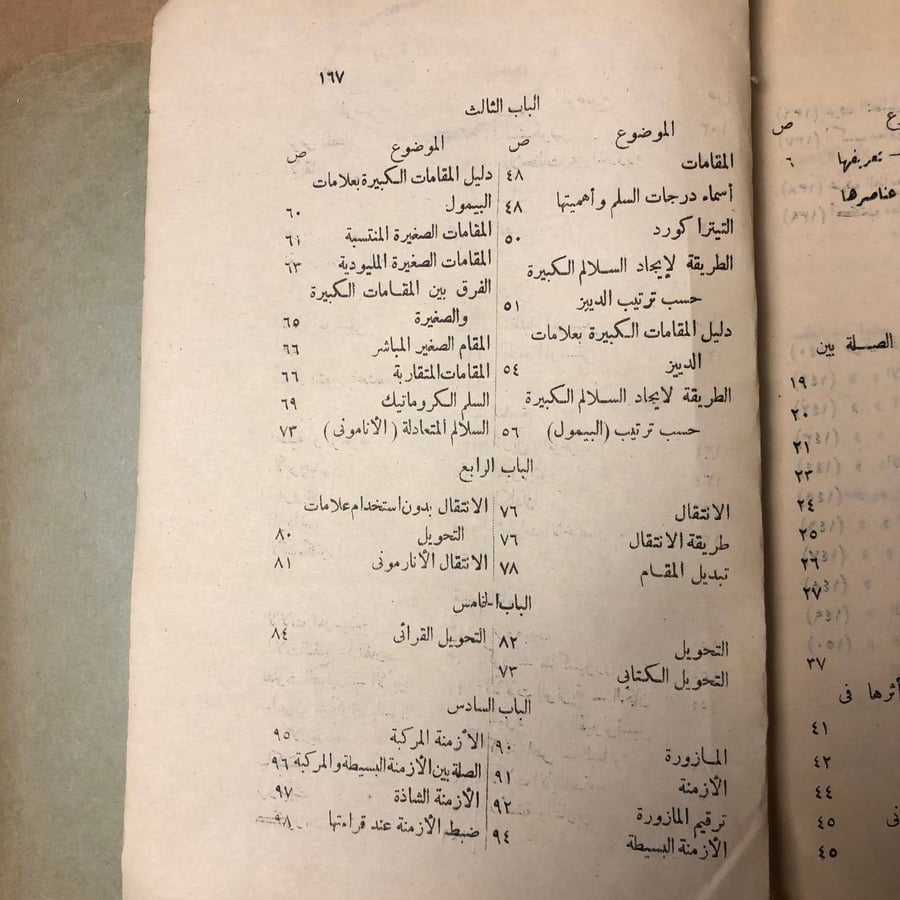 ص
تعريفها ٦
عناصرها
الصلة بين
١٩
٢٠
٢١
٢٣
٢٤
٢٥
٢٦
٢٧
٣٧
أثرها فى
٤١
٤٢
٤٤
٤٥
٤٥
١٦٧
الباب الثالث
الموضوع ص
المقامات ٤٨
أسماء درجات السلم وأهميتها ٤٨
التيتراكورد ٥٠
الطريقة لإيجاد السلالم الكبيرة
حسب ترتيب الدييز ٥١
دليل المقامات الكبيرة بعلامات
الدييز ٥٤
الطريقة لايجاد السلالم الكبيرة
حسب ترتيب (البيمول) ٥٦
الموضوع ص
دليل المقامات الكبيرة بعلامات
البيمول ٦٠
المقامات الصغيرة المنتسبة ٦١
المقامات الصغيرة المليودية ٦٣
الفرق بين المقامات الكبيرة
والصغيرة ٦٥
المقام الصغير المباشر ٦٦
المقامات المتقاربة ٦٦
السلم الكروماتيك ٦٩
السلالم المتعادلة (الأنامونى) ٧٣
الباب الرابع
الانتقال ٧٦
طريقة الانتقال ٧٦
تبديل المقام ٧٨
الانتقال بدون استخدام علامات
التحويل ٨٠
الانتقال الأنارمونى ٨١
الباب الخامس
التحويل ٨٢
التحويل الكتابى ٧٣
التحويل القرائى ٨٤
الباب السادس
المازورة ٩٠
الأزمنة ٩١
ترقيم المازورة ٩٢
الأزمنة البسيطة ٩٤
الأزمنة المركبة ٩٥
الصلة بين الأزمنة البسيطة والمركبة ٩٦
الأزمنة الشاذة ٩٧
ضبط الأزمنة عند قراءتها ٩٨